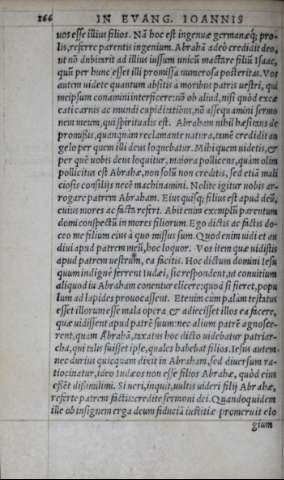 266 IN EVANG. IOANNIS
uos esse illius filios. Nã hoc est ingenuæ germanæq; pro-
lis, referre parentis ingenium. Abrahã adeò credidit deo,
ut nõ dubitarit ad illius iussum unicũ mactare filiũ Isaac,
quũ per hunc esset illi promissa numerosa posteritas. Vos
autem uidete quantum absitis à moribus patris uestri, qui
meipsum conamini interficere: nõ ob aliud, nisi quòd excæ
cati carnis ac mundi cupiditatibus, nõ assequamini sermo
nem meum, qui spiritualis est. Abraham nihil hæsitans de
promissis, quanquàm reclamante natura, tamẽ credidit an
gelo per quem illi deus loquebatur. Mihi quem uidetis, &
per quẽ uobis deus loquitur, maiora pollicens, quàm olim
pollicitus est Abrahæ, non solũ non creditis, sed etiã mali
ciosis consilijs necẽ machinamini. Nolite igitur nobis ar-
rogare patrem Abraham. Eius quisq; filius est apud deũ,
cuius mores ac facta refert. Abit enim exemplũ parentum
domi conspectũ in mores filiorum. Ego dictis ac factis do-
ceo me filium eius à quo missus sum. Quod enim uidi et au
diui apud patrem meũ, hoc loquor. Vos item quæ uidistis
apud patrem uestrum, ea facitis. Hoc dictum domini Iesu
quum indignè ferrent Iudæi, sic respondent, ut conuitium
aliquod in Abraham conentur elicere: quod si fieret, popu
lum ad lapides prouocassent. Etenim cum palam testatus
esset illorum esse mala opera, & adiecisset illos ea facere,
quæ uidissent apud patrẽ suum: nec alium patrẽ agnosce-
rent, quàm Abrahã, taxatus hoc dicto uidebatur patriar-
cha, qui talis fuisset ipse, quales habebat filios. Iesus autem
nec durius quicquam dixit in Abraham, sed diuersum ra-
tiocinatur, ideo Iudæos non esse filios Abrahæ, quòd eius
essẽt dissimilimi. Si ueri, inquit, uultis uideri filij Abrahæ,
referte patrem factis: credite sermoni dei. Quandoquidem
ille ob insignem erga deum fiduciã iustitiæ promeruit elo
gium